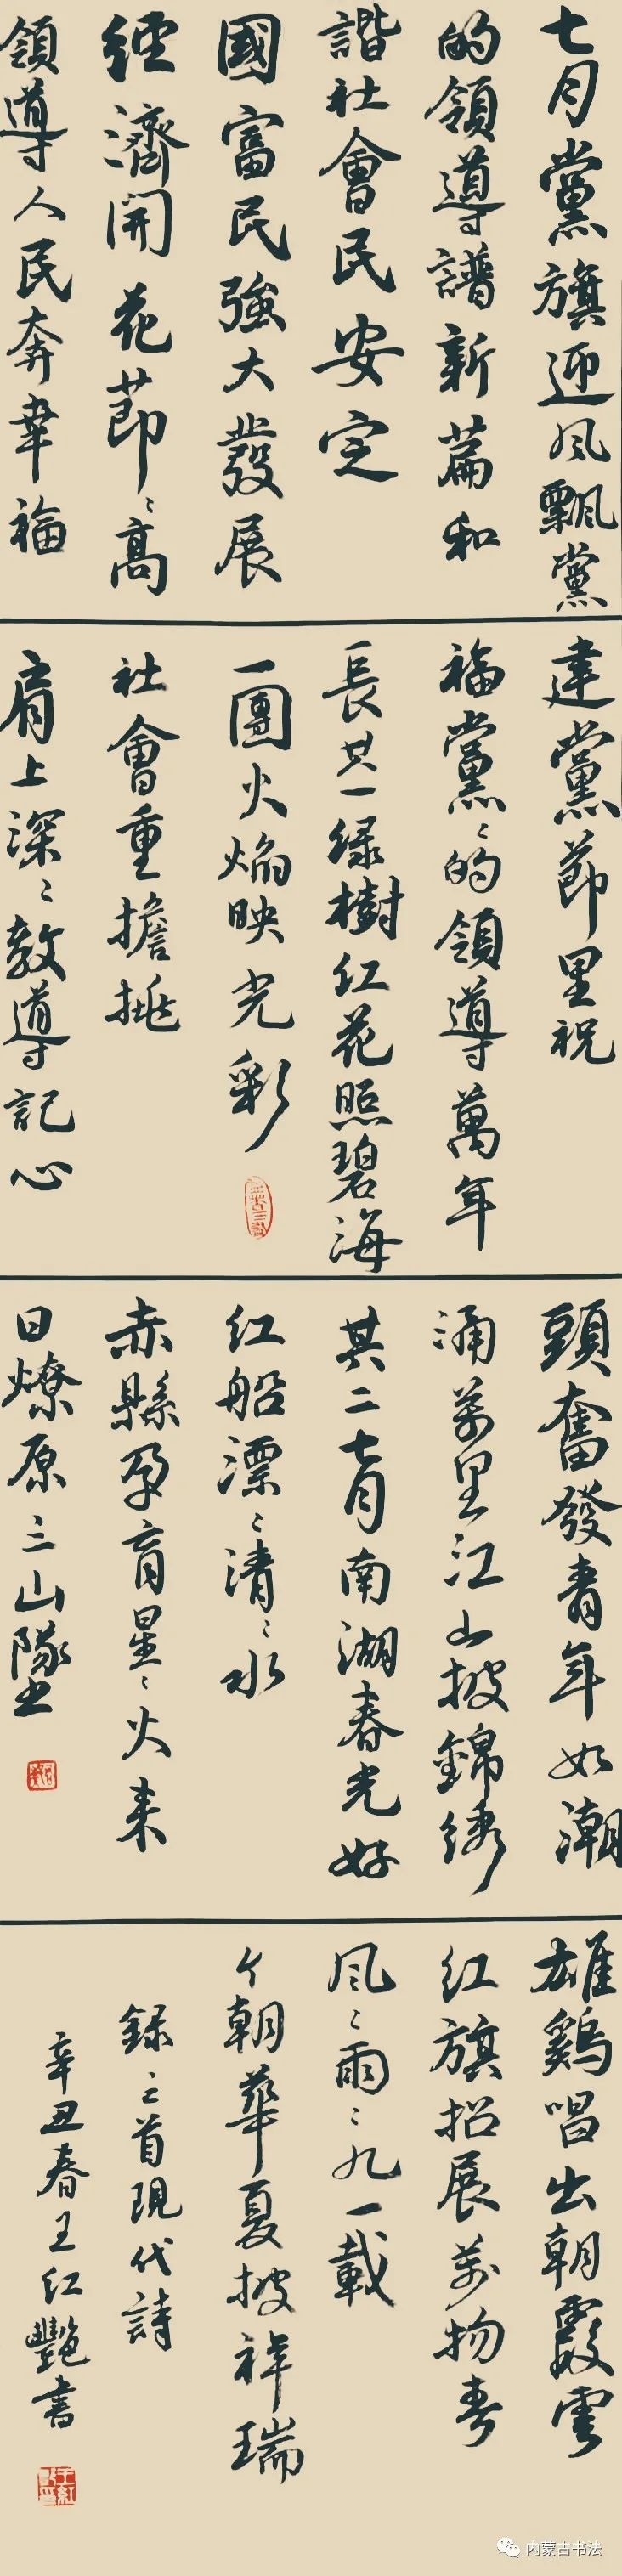 七月黨旗迎风飘黨
的領導譜新篇和
諧社會民安定
國富民強大發展
經濟開花節〻高
領導人民奔幸福
建黨節里祝
福黨〻的領導萬年
長其一绿樹红花照碧海
一團火焰映光彩
社會重擔挑
肩上深〻教導記心
頭奮發青年如潮
涌万里江山披錦绣
其二七月南湖春光好
红船漂〻清〻水
赤縣孕育星〻火来
日燎原三山墜
雄鷄唱出朝霞雲
红旗招展万物春
风〻雨〻九一載
个朝華夏披祥瑞
録三首現代詩
辛丑春王红艷書
内蒙古书法